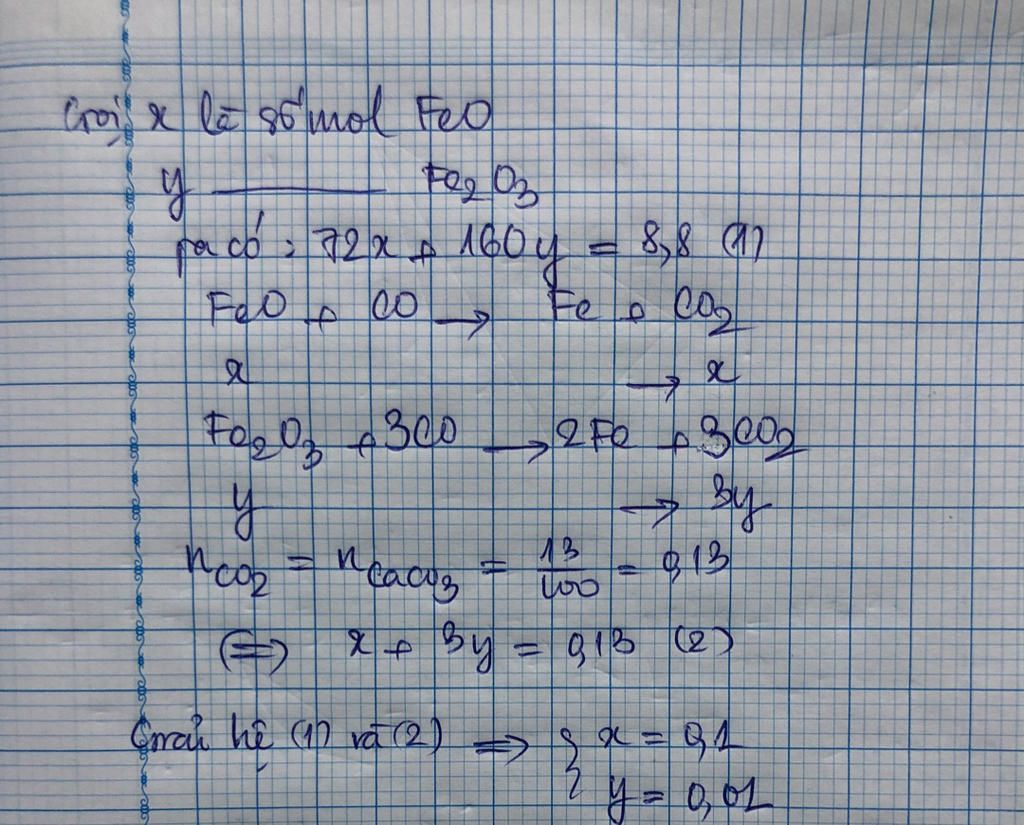 Gọi x là số mol FeO
y ——— Fe₂O₃
Ta có: 72x + 160y = 8,8 (1)
FeO + CO → Fe + CO₂
x → x
Fe₂O₃ + 3CO → 2Fe + 3CO₂
y → 3y
n_CO₂ = n_CaCO₃ = 13/100 = 0,13
(=) x + 3y = 0,13 (2)
Giải hệ (1) và (2) ⇒ { x = 0,1
y = 0,01